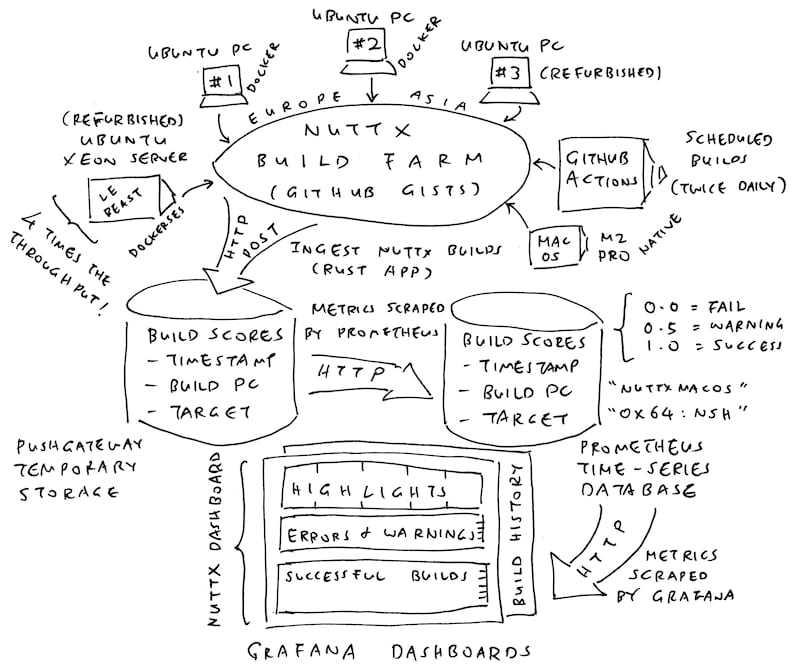 UBUNTU PC
#2
DOCKER
UBUNTU PC
#1
DOCKER
UBUNTU PC
#3
(REFURBISHED)
EUROPE ASIA
NUTTX
BUILD FARM
(GITHUB GISTS)
(REFURBISHED)
UBUNTU
XEON SERVER
LE
BEAST
DOCKERSES
4 TIMES THE
THROUGHPUT!
GITHUB
ACTIONS
SCHEDULED
BUILDS
(TWICE DAILY)
MAC
OS
M2
PRO
NATIVE
HTTP
POST
INGEST NUTTX BUILDS
(RUST APP)
BUILD SCORES
- TIMESTAMP
- BUILD PC
- TARGET
PUSHGATEWAY
TEMPORARY
STORAGE
METRICS SCRAPED
BY PROMETHEUS
HTTP
BUILD SCORES
- TIMESTAMP
- BUILD PC
- TARGET
0.0 = FAIL
0.5 = WARNING
1.0 = SUCCESS
"NUTTXMACOS"
"OX64:NSH"
PROMETHEUS
TIME-SERIES
DATABASE
HTTP
METRICS
SCRAPED
BY GRAFANA
NUTTX DASHBOARD
HIGHLIGHTS
ERRORS & WARNINGS
SUCCESSFUL BUILDS
BUILD HISTORY
GRAFANA DASHBOARDS